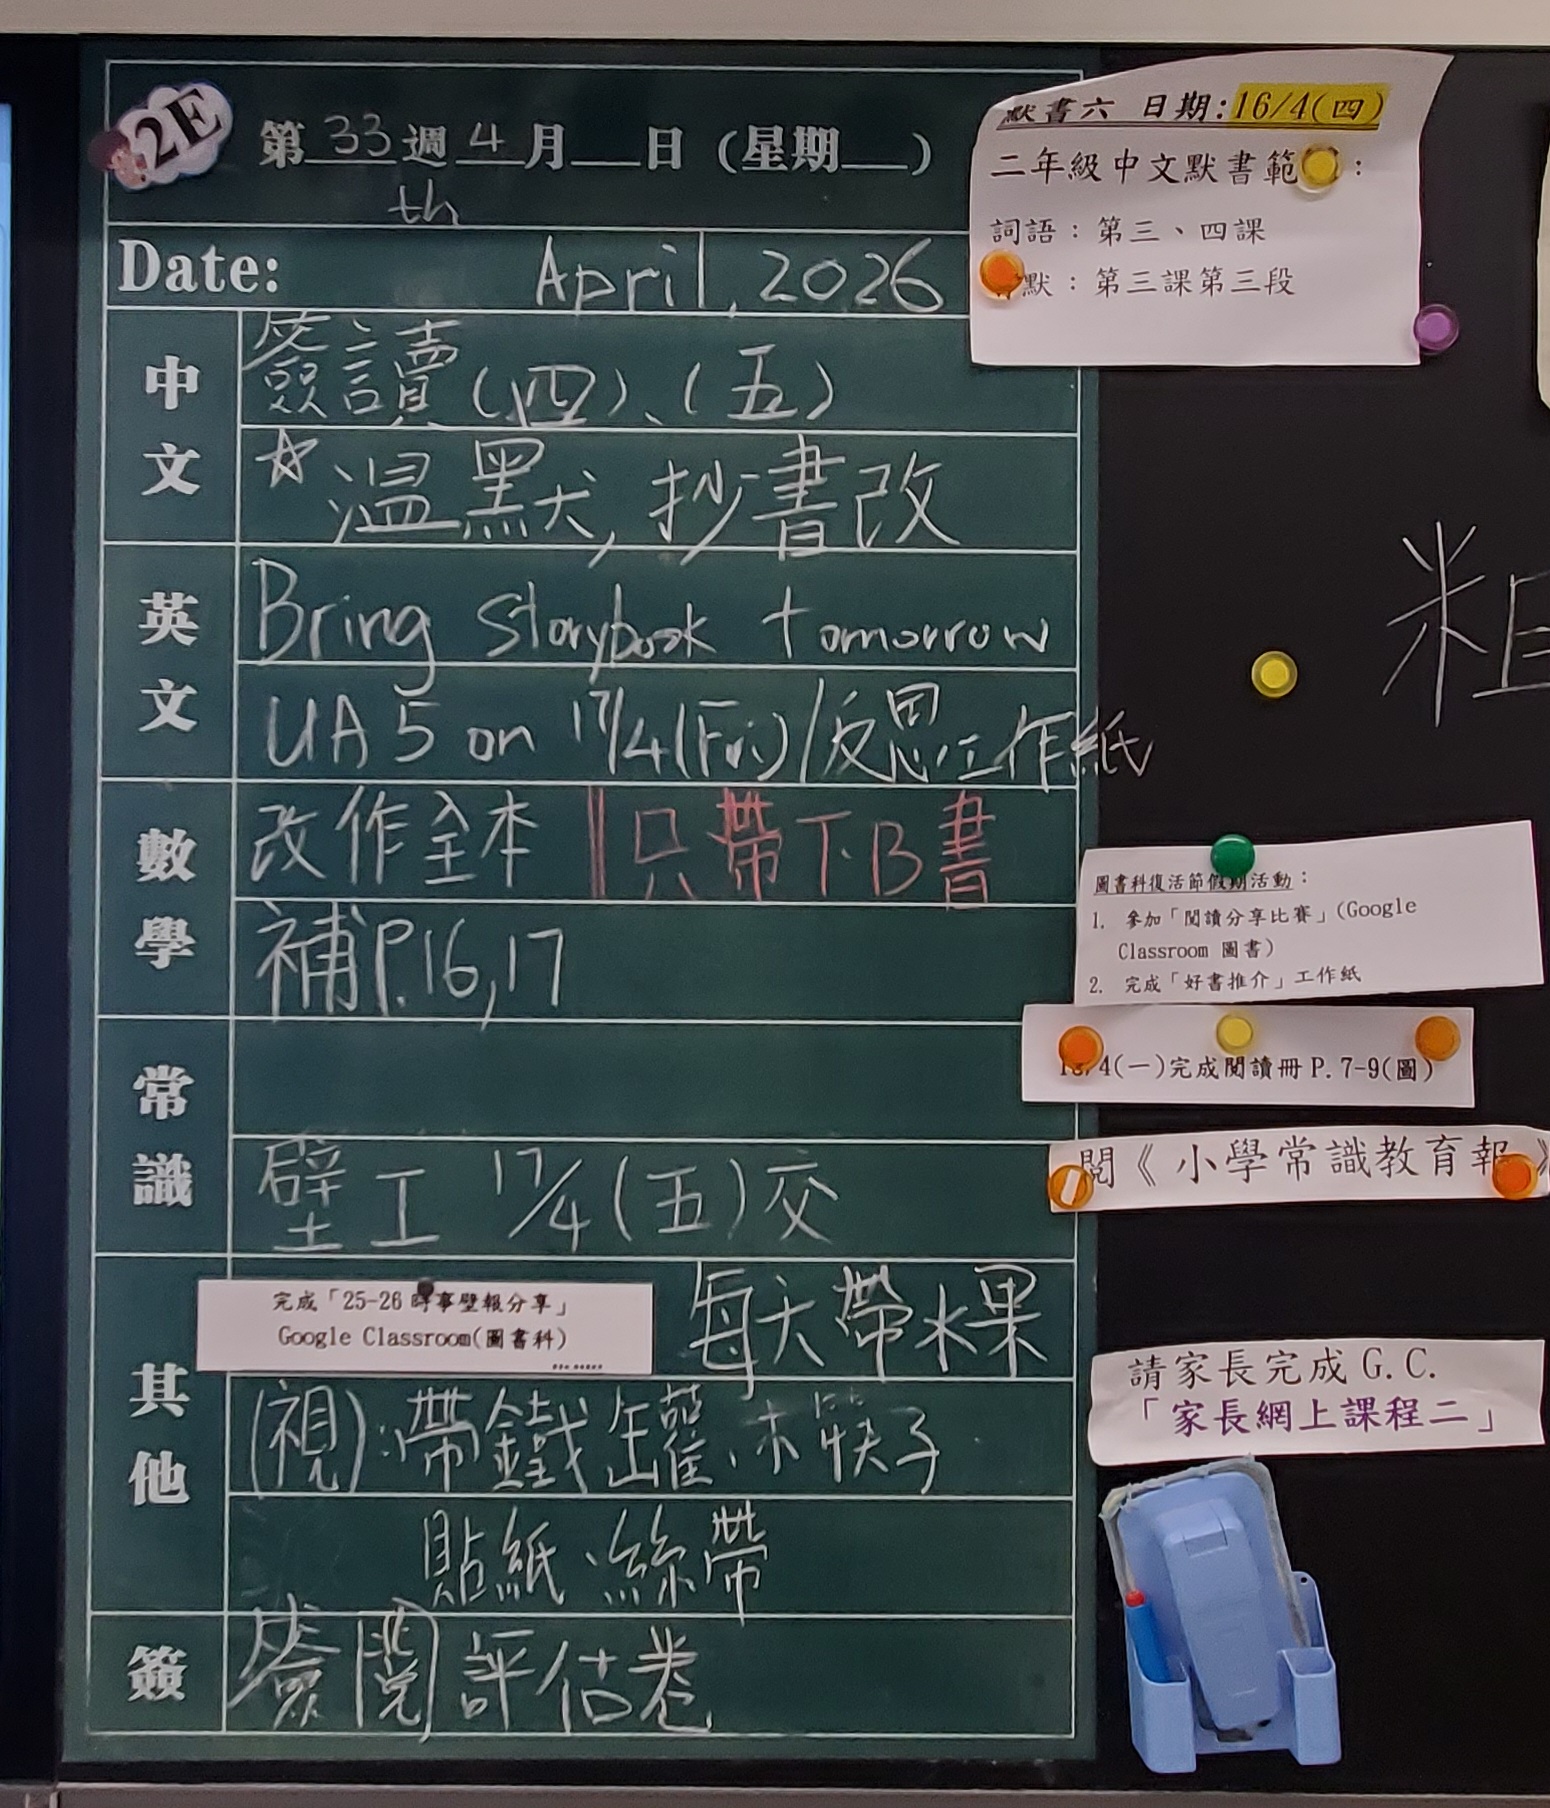 2E
第33週4月__日(星期__)
th
Date: April, 2026
中文
簽讀(四)、(五)
☆溫默,抄書改
英文
Bring storybook tomorrow
UA 5 on 17/4(Fri)/反思工作紙
數學
改作全本 ||只帶T.B書
補P.16,17
常識
壁工 17/4(五)交
其他
完成「25-26時事壁報分享」
Google Classroom(圖書科)
每天帶水果
(視):帶鐵罐、木筷子
貼紙、絲帶
簽
簽閱評估卷
默書六 日期:16/4(四)
二年級中文默書範:
詞語:第三、四課
默:第三課第三段
粗
圖書科復活節假期活動:
1. 參加「閱讀分享比賽」(Google
Classroom 圖書)
2. 完成「好書推介」工作紙
/4(一)完成閱讀冊P.7-9(圖)
閱《小學常識教育報》
請家長完成G.C.
「家長網上課程二」